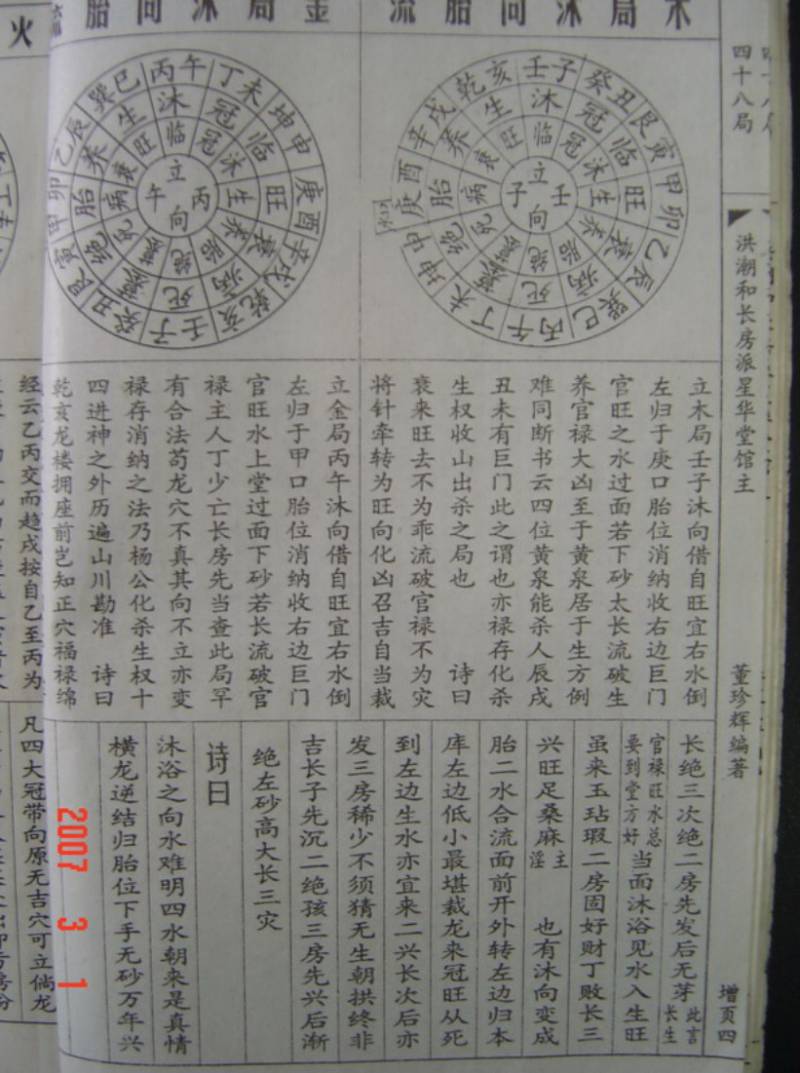 四十八局
洪潮和长房派星华堂馆主
董珍辉编著
增页四
木局沐向胎流
壬子
癸丑
艮寅
甲卯
乙辰
巽巳
丙午
丁未
坤申
庚酉
辛戌
乾亥
沐
冠
临
旺
衰
病
死
墓
绝
胎
养
生
临
冠
沐
生
养
胎
绝
墓
死
病
衰
旺
立壬向子
立木局壬子沐向借自旺宜右水倒
左归于庚口胎位消纳收右边巨门
官旺之水过面若下砂太长流破生
养官禄大凶至于黄泉居于生方例
难同断书云四位黄泉能杀人辰戌
丑未有巨门此之谓也亦禄存化杀
生权收山出杀之局也 诗曰
衰来旺去不为乖流破官禄不为灾
将针牵转为旺向化凶召吉自当裁
金局沐向胎
丙午
丁未
坤申
庚酉
辛戌
乾亥
壬子
癸丑
艮寅
甲卯
乙辰
巽巳
沐
冠
临
旺
衰
病
死
墓
绝
胎
养
生
临
冠
沐
生
养
胎
绝
墓
死
病
衰
旺
立丙向午
立金局丙午沐向借自旺宜右水倒
左归于甲口胎位消纳收右边巨门
官旺水上堂过面下砂若长流破官
禄主人丁少亡长房先当查此局罕
有合法苟龙穴不真其向不立亦变
禄存消纳之法乃杨公化杀生权十
四进神之外历遍山川勘准 诗曰
乾亥龙楼拥座前岂知正穴福禄绵
长绝三次绝二房先发后无芽此言长生
官禄旺水总要到堂方好当面沐浴见水入生旺
虽来玉玷瑕二房固好财丁败长三
兴旺足桑麻主淫 也有沐向变成
胎二水合流面前开外转左边归本
库左边低小最堪裁龙来冠旺从死
到左边生水亦宜来二兴长次后亦
发三房稀少不须猜无生朝拱终非
吉长子先沉二绝孩三房先兴后渐
绝左砂高大长三灾
诗曰
沐浴之向水难明四水朝来是真情
横龙逆结归胎位下手无砂万年兴
火
经云乙丙交而趋戌按自乙至丙为
凡四大冠带向原无吉穴可立倘龙
2007 3 1